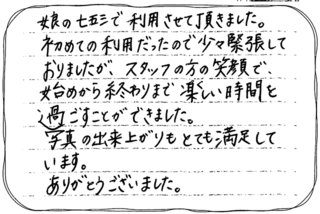 娘の七五三で利用させて頂きました。
初めての利用だったので少々緊張して
おりましたが、スタッフの方の笑顔で、
始めから終わりまで楽しい時間を
過ごすことができました。
写真の出来上がりもとても満足して
います。
ありがとうございました。